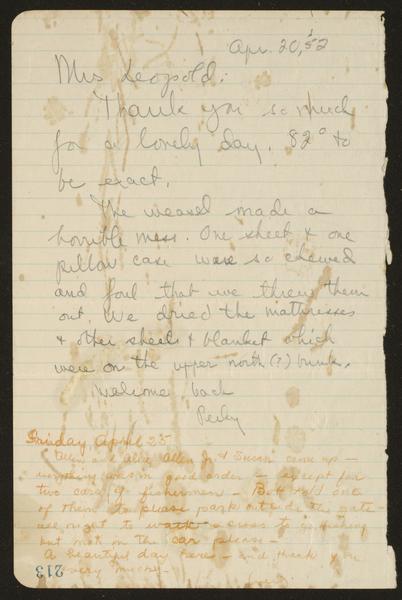 Apr. 20, '52
Mrs Leopold:
Thank you so much
for a lovely day. 82° to
be exact.
The weasel made a
horrible mess. One sheet & one
pillow case were so chewed
and foul that we threw them
out. We dried the mattresses
& other sheets & blanket which
were on the upper north (?) bunk.
Welcome back
April 25
Allen Jr & Susan came up —
everything was in good order — except for
two cars of fishermen — Both told
of them to please park outside the gate —
ought to walk across to go fishing
but not in the car please —
A beautiful day here — and thank you
very much —
213